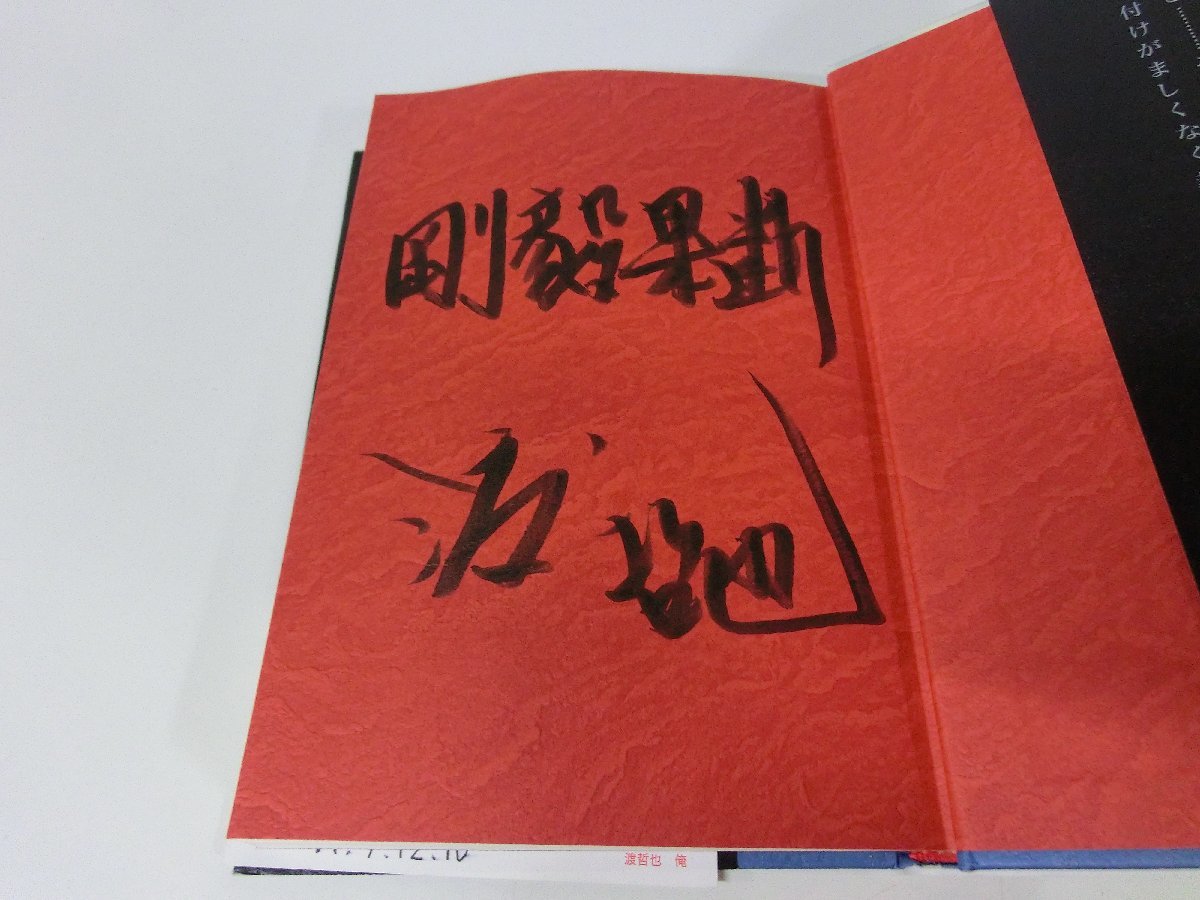 剛毅果断
渡哲也
付けがましくなく
渡哲也 俺